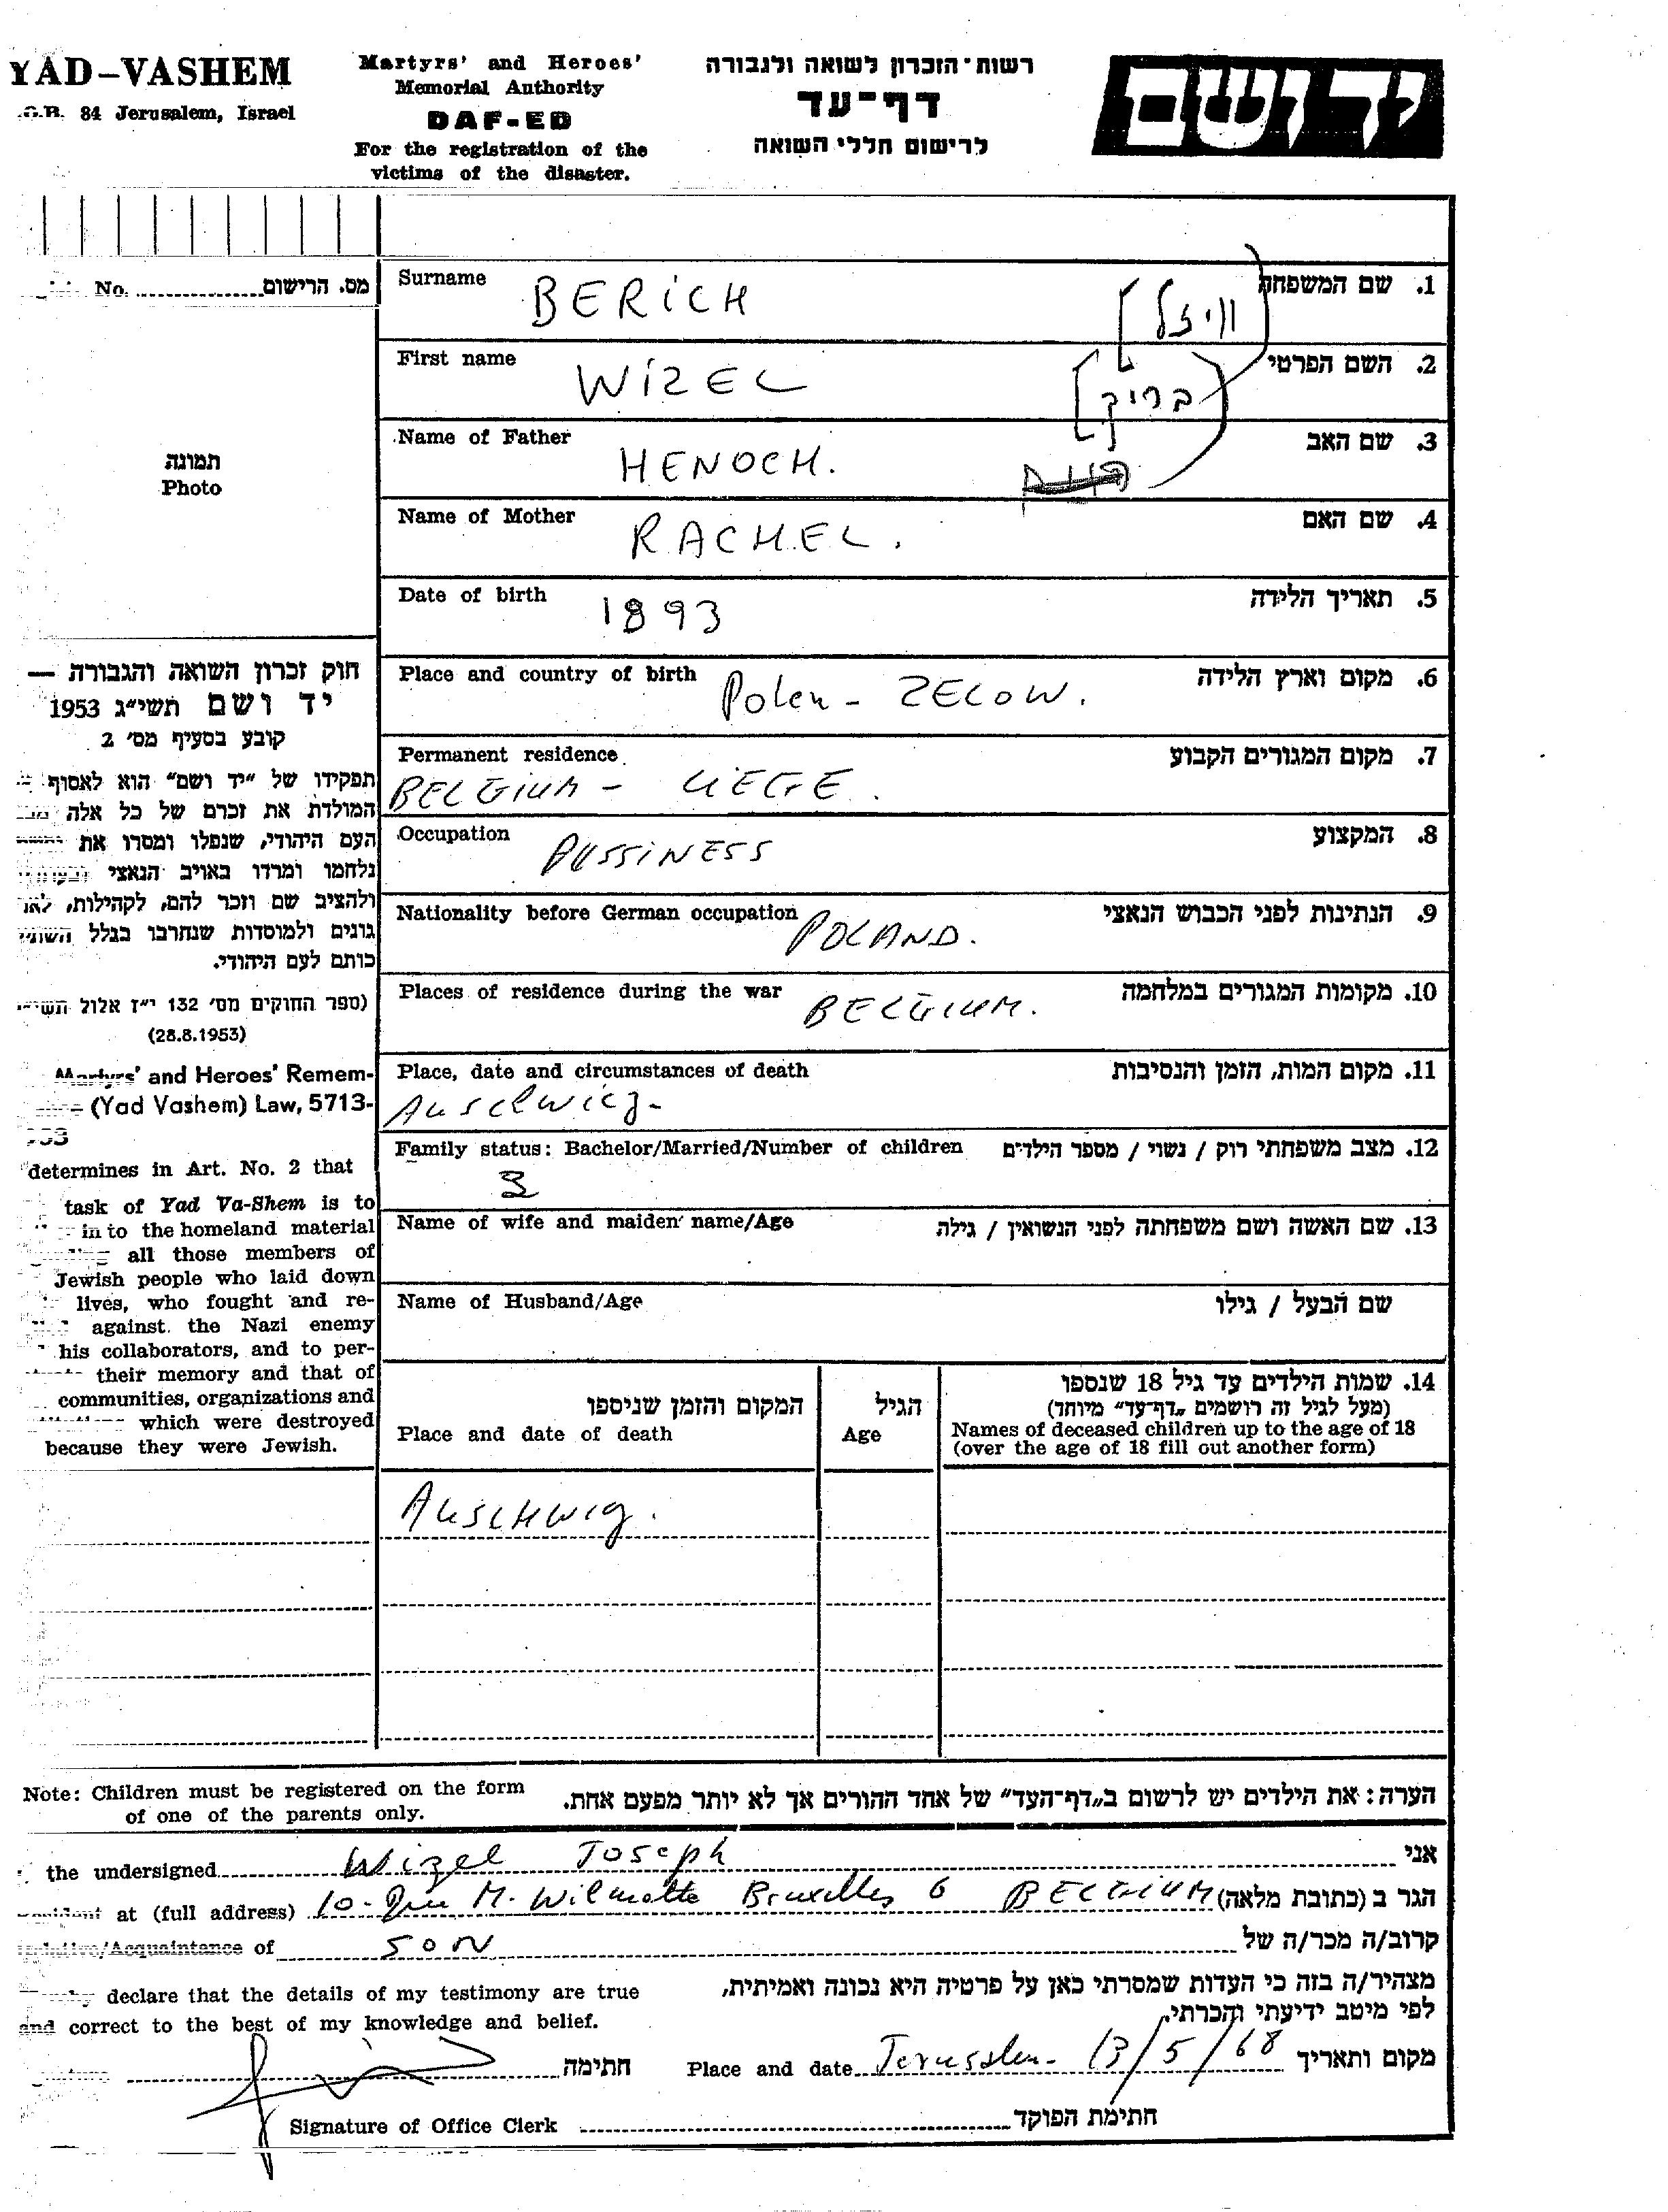 YAD-VASHEM
84 Jerusalem, Israel
Martyrs' and Heroes'
Memorial Authority
DAF-ED
For the registration of the
victims of the disaster.
רשות-הזכרון לשואה ולגבורה
דף-עד
לרישום חללי השואה
יד ושם
No. מס. הרישום
תמונה
Photo
חוק זכרון השואה והגבורה —
יד ושם תשי"ג 1953
קובע בסעיף מס' 2
תפקידו של "יד ושם" הוא לאסוף
המולדת את זכרם של כל אלה
העם היהודי, שנפלו ומסרו את
נלחמו ומרדו באויב הנאצי
ולהציב שם וזכר להם, לקהילות,
גונים ולמוסדות שנחרבו בגלל
כותם לעם היהודי.
(ספר החוקים מס' 132 י"ז אלול
(28.8.1953)
Martyrs' and Heroes' Remem-
(Yad Vashem) Law, 5713-
determines in Art. No. 2 that
task of Yad Va-Shem is to
in to the homeland material
all those members of
Jewish people who laid down
lives, who fought and re-
against the Nazi enemy
his collaborators, and to per-
their memory and that of
communities, organizations and
which were destroyed
because they were Jewish.
Surname BERICH ויזל 1. שם המשפחה
First name WIZEL בריך 2. השם הפרטי
Name of Father HENOCH. 3. שם האב
Name of Mother RACHEL. 4. שם האם
Date of birth 1893 5. תאריך הלידה
Place and country of birth Polen - ZELOW. 6. מקום וארץ הלידה
Permanent residence 7. מקום המגורים הקבוע
BELGIUM - LIEGE.
Occupation BUSSINESS 8. המקצוע
Nationality before German occupation POLAND. 9. הנתינות לפני הכבוש הנאצי
Places of residence during the war BELGIUM. 10. מקומות המגורים במלחמה
Place, date and circumstances of death 11. מקום המות, הזמן והנסיבות
Auschwicz-
Family status: Bachelor/Married/Number of children 12. מצב משפחתי רוק / נשוי / מספר הילדים
3
Name of wife and maiden name/Age 13. שם האשה ושם משפחתה לפני הנשואין / גילה
Name of Husband/Age שם הבעל / גילו
14. שמות הילדים עד גיל 18 שנספו
(מעל לגיל זה רושמים "דף-עד" מיוחד)
Names of deceased children up to the age of 18
(over the age of 18 fill out another form)
הגיל
Age
המקום והזמן שניספו
Place and date of death
AUSCHWIG.
Note: Children must be registered on the form
of one of the parents only.
הערה: את הילדים יש לרשום ב"דף-העד" של אחד ההורים אך לא יותר מפעם אחת.
the undersigned Wizel Joseph אני
at (full address) 10- Rue M. Wilmotte Bruxelles 6 BELGIUM הגר ב (כתובת מלאה)
Relative/Acquaintance of SON קרוב/ה מכר/ה של
declare that the details of my testimony are true
and correct to the best of my knowledge and belief.
מצהיר/ה בזה כי העדות שמסרתי כאן על פרטיה היא נכונה ואמיתית,
לפי מיטב ידיעתי והכרתי.
חתימה Place and date Jerusalem- 13/5/68 מקום ותאריך
Signature of Office Clerk חתימת הפוקד